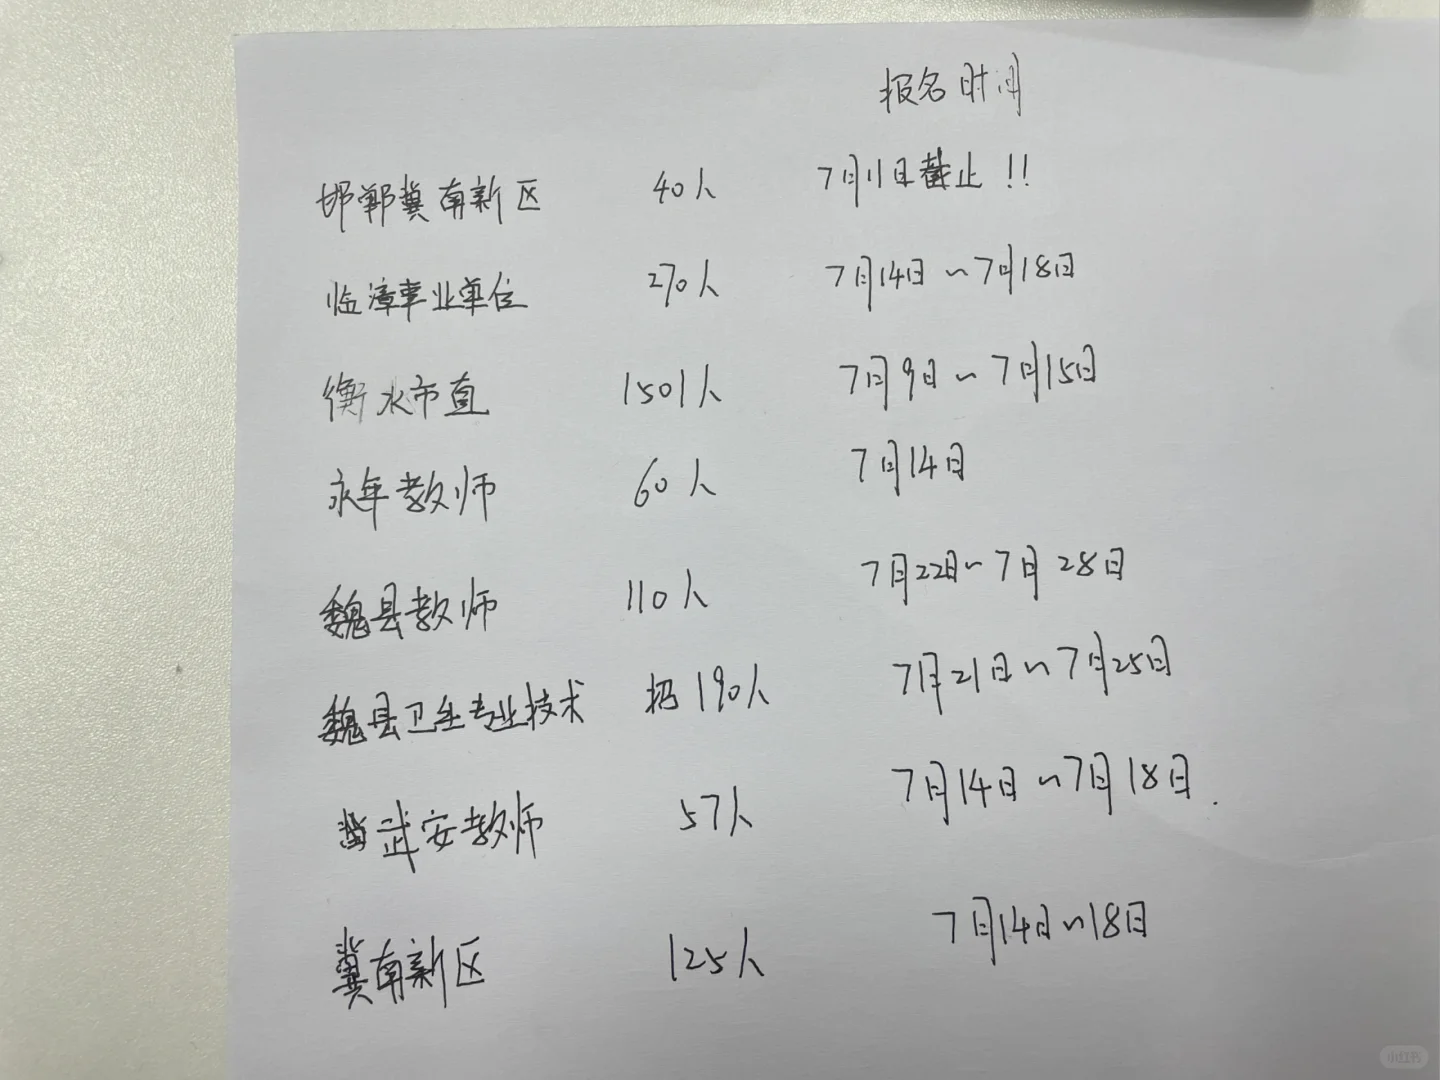 报名时间
邯郸冀南新区 40人 7月11日截止!!
临漳事业单位 270人 7月14日~7月18日
衡水市直 1501人 7月9日~7月15日
永年教师 60人 7月14日
魏县教师 110人 7月22日~7月28日
魏县卫生专业技术 招190人 7月21日~7月25日
武安教师 57人 7月14日~7月18日.
冀南新区 125人 7月14日~18日
小红书